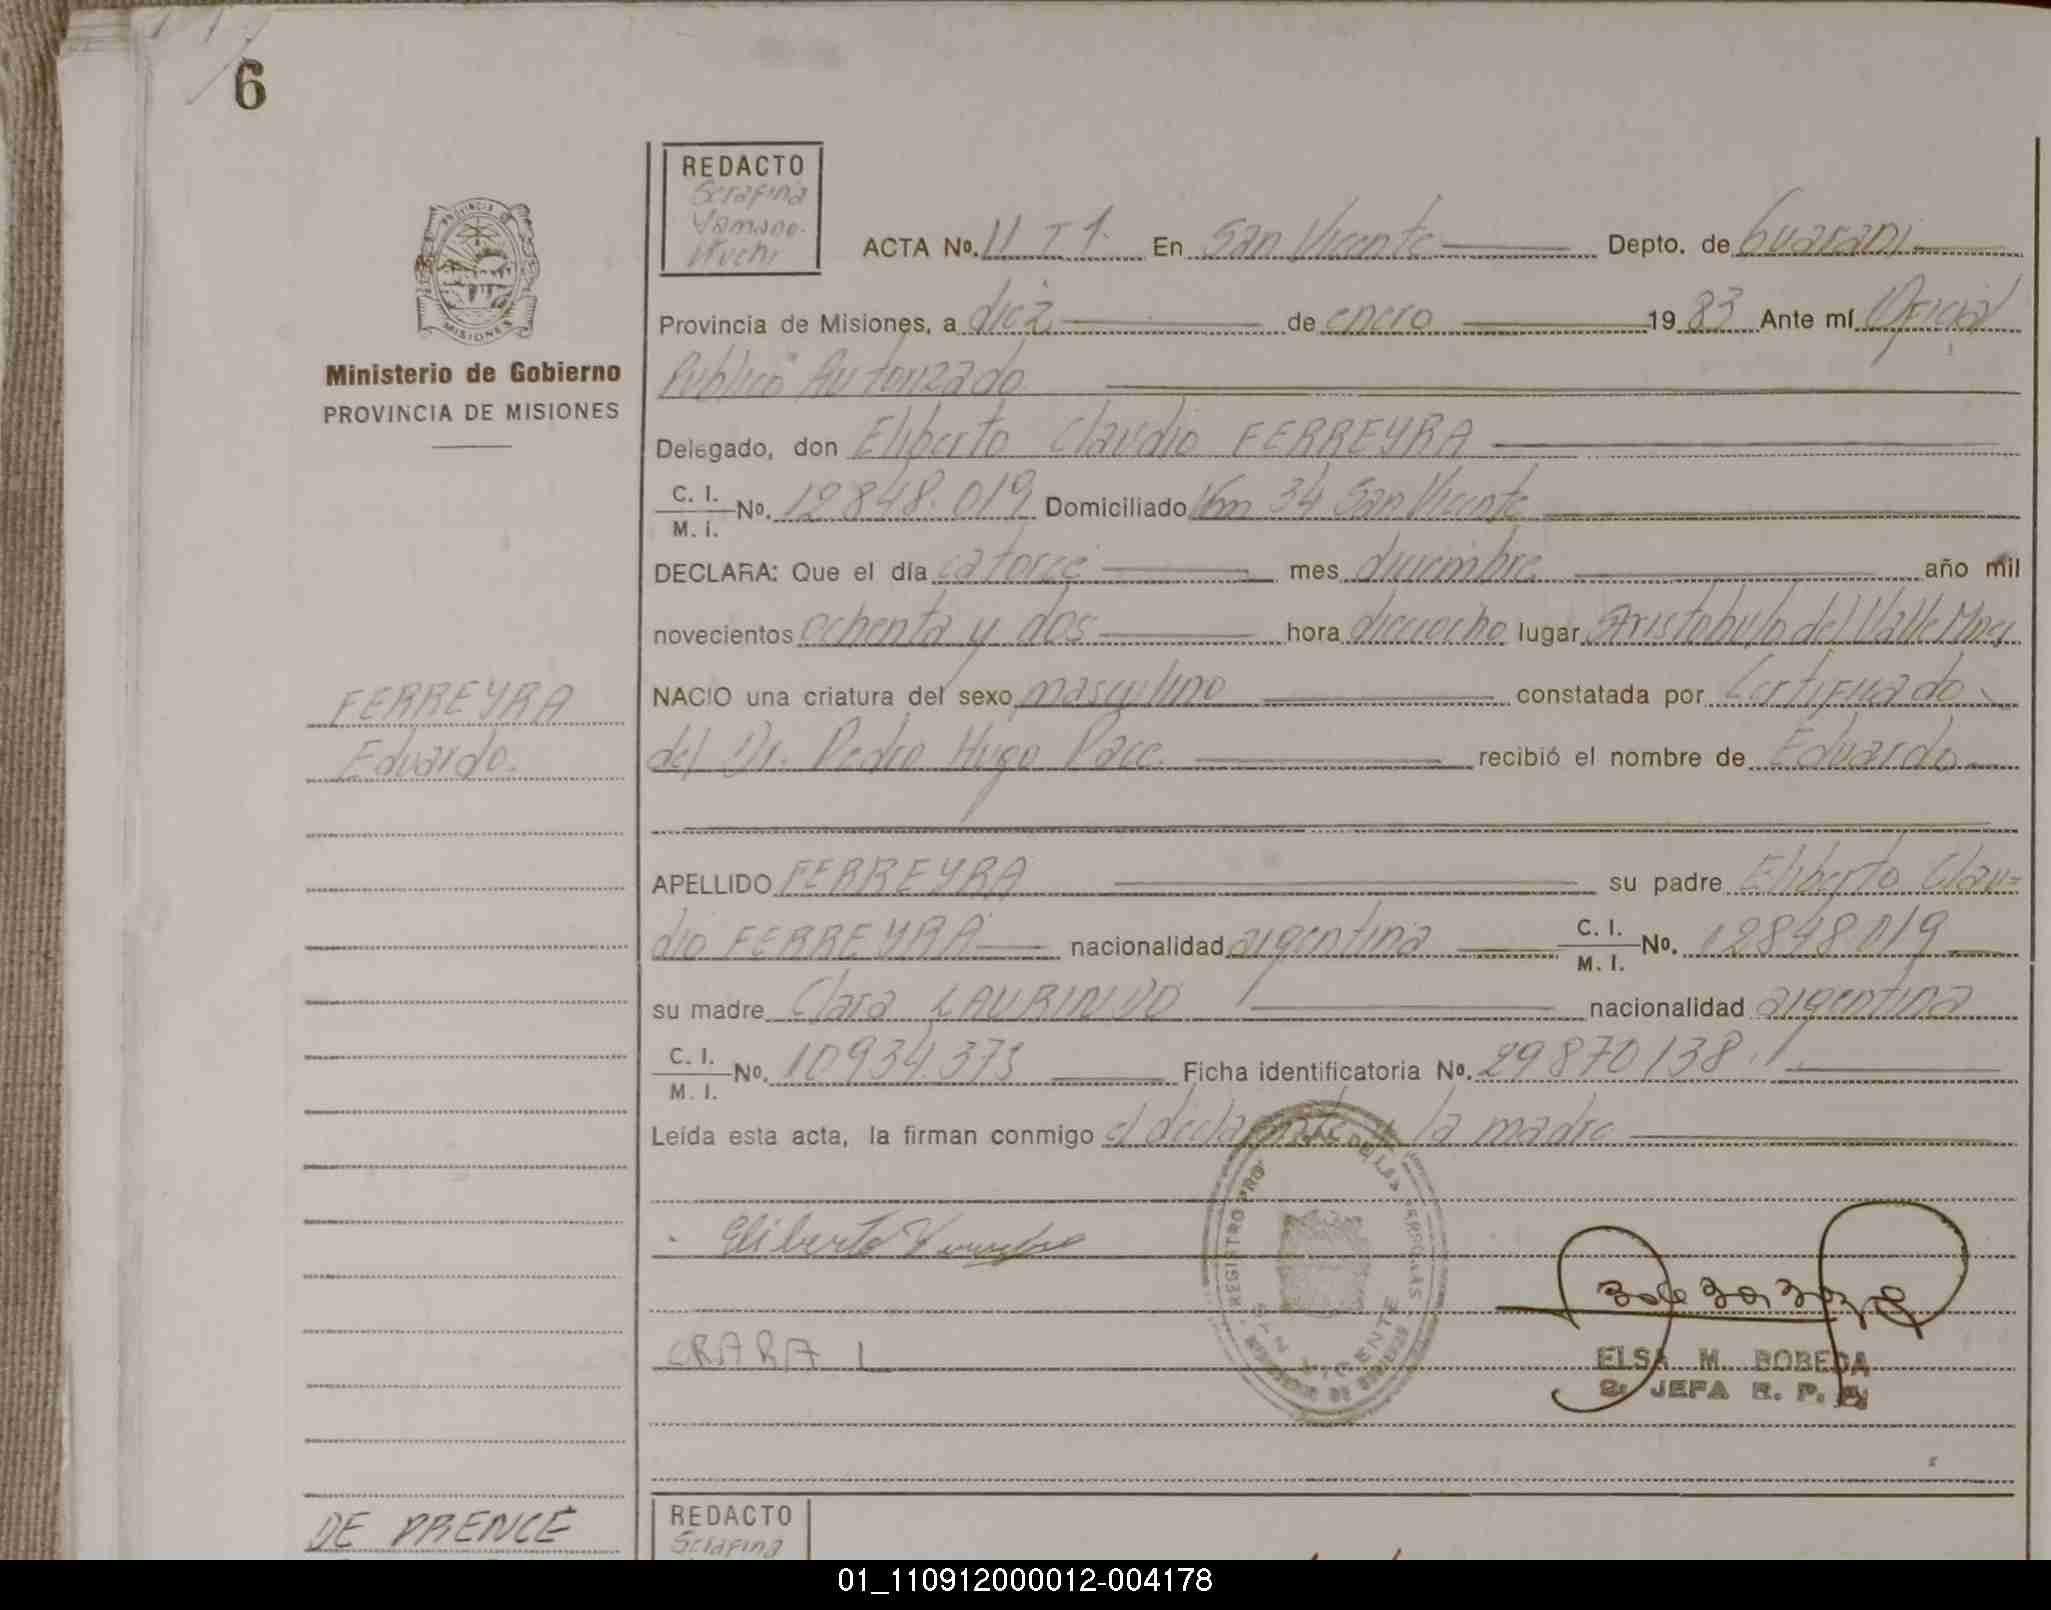 6
REDACTO
Serafina
ACTA Nº. 11 T 1. En San Vicente Depto. de Guarani
Provincia de Misiones, a diez de enero 1983 Ante mí Oficial
Público Autorizado
MISIONES
Ministerio de Gobierno
PROVINCIA DE MISIONES
Delegado, don Eliberto Claudio FERREYRA
C. I.
M. I. Nº. 12848.019 Domiciliado Km 34 San Vicente
DECLARA: Que el día catorce mes diciembre año mil
novecientos ochenta y dos hora dieciocho lugar Aristobulo del Valle Mnes
FERREYRA
Eduardo.
NACIO una criatura del sexo masculino constatada por Certificado
del Dr. Pedro Hugo Pace. recibió el nombre de Eduardo
APELLIDO FERREYRA su padre Eliberto Clau=
dio FERREYRA nacionalidad argentina C. I.
M. I. Nº. 12848019
su madre Clara LAURINDO nacionalidad argentina
C. I.
M. I. Nº. 10934.373 Ficha identificatoria Nº. 29870138.
Leída esta acta, la firman conmigo el declarante y la madre
Eliberto
CRARA L
SAN VICENTE
ELSA M. BOBEDA
2º JEFA R. P.
DE PRENCE
REDACTO
Serafina
01_110912000012-004178